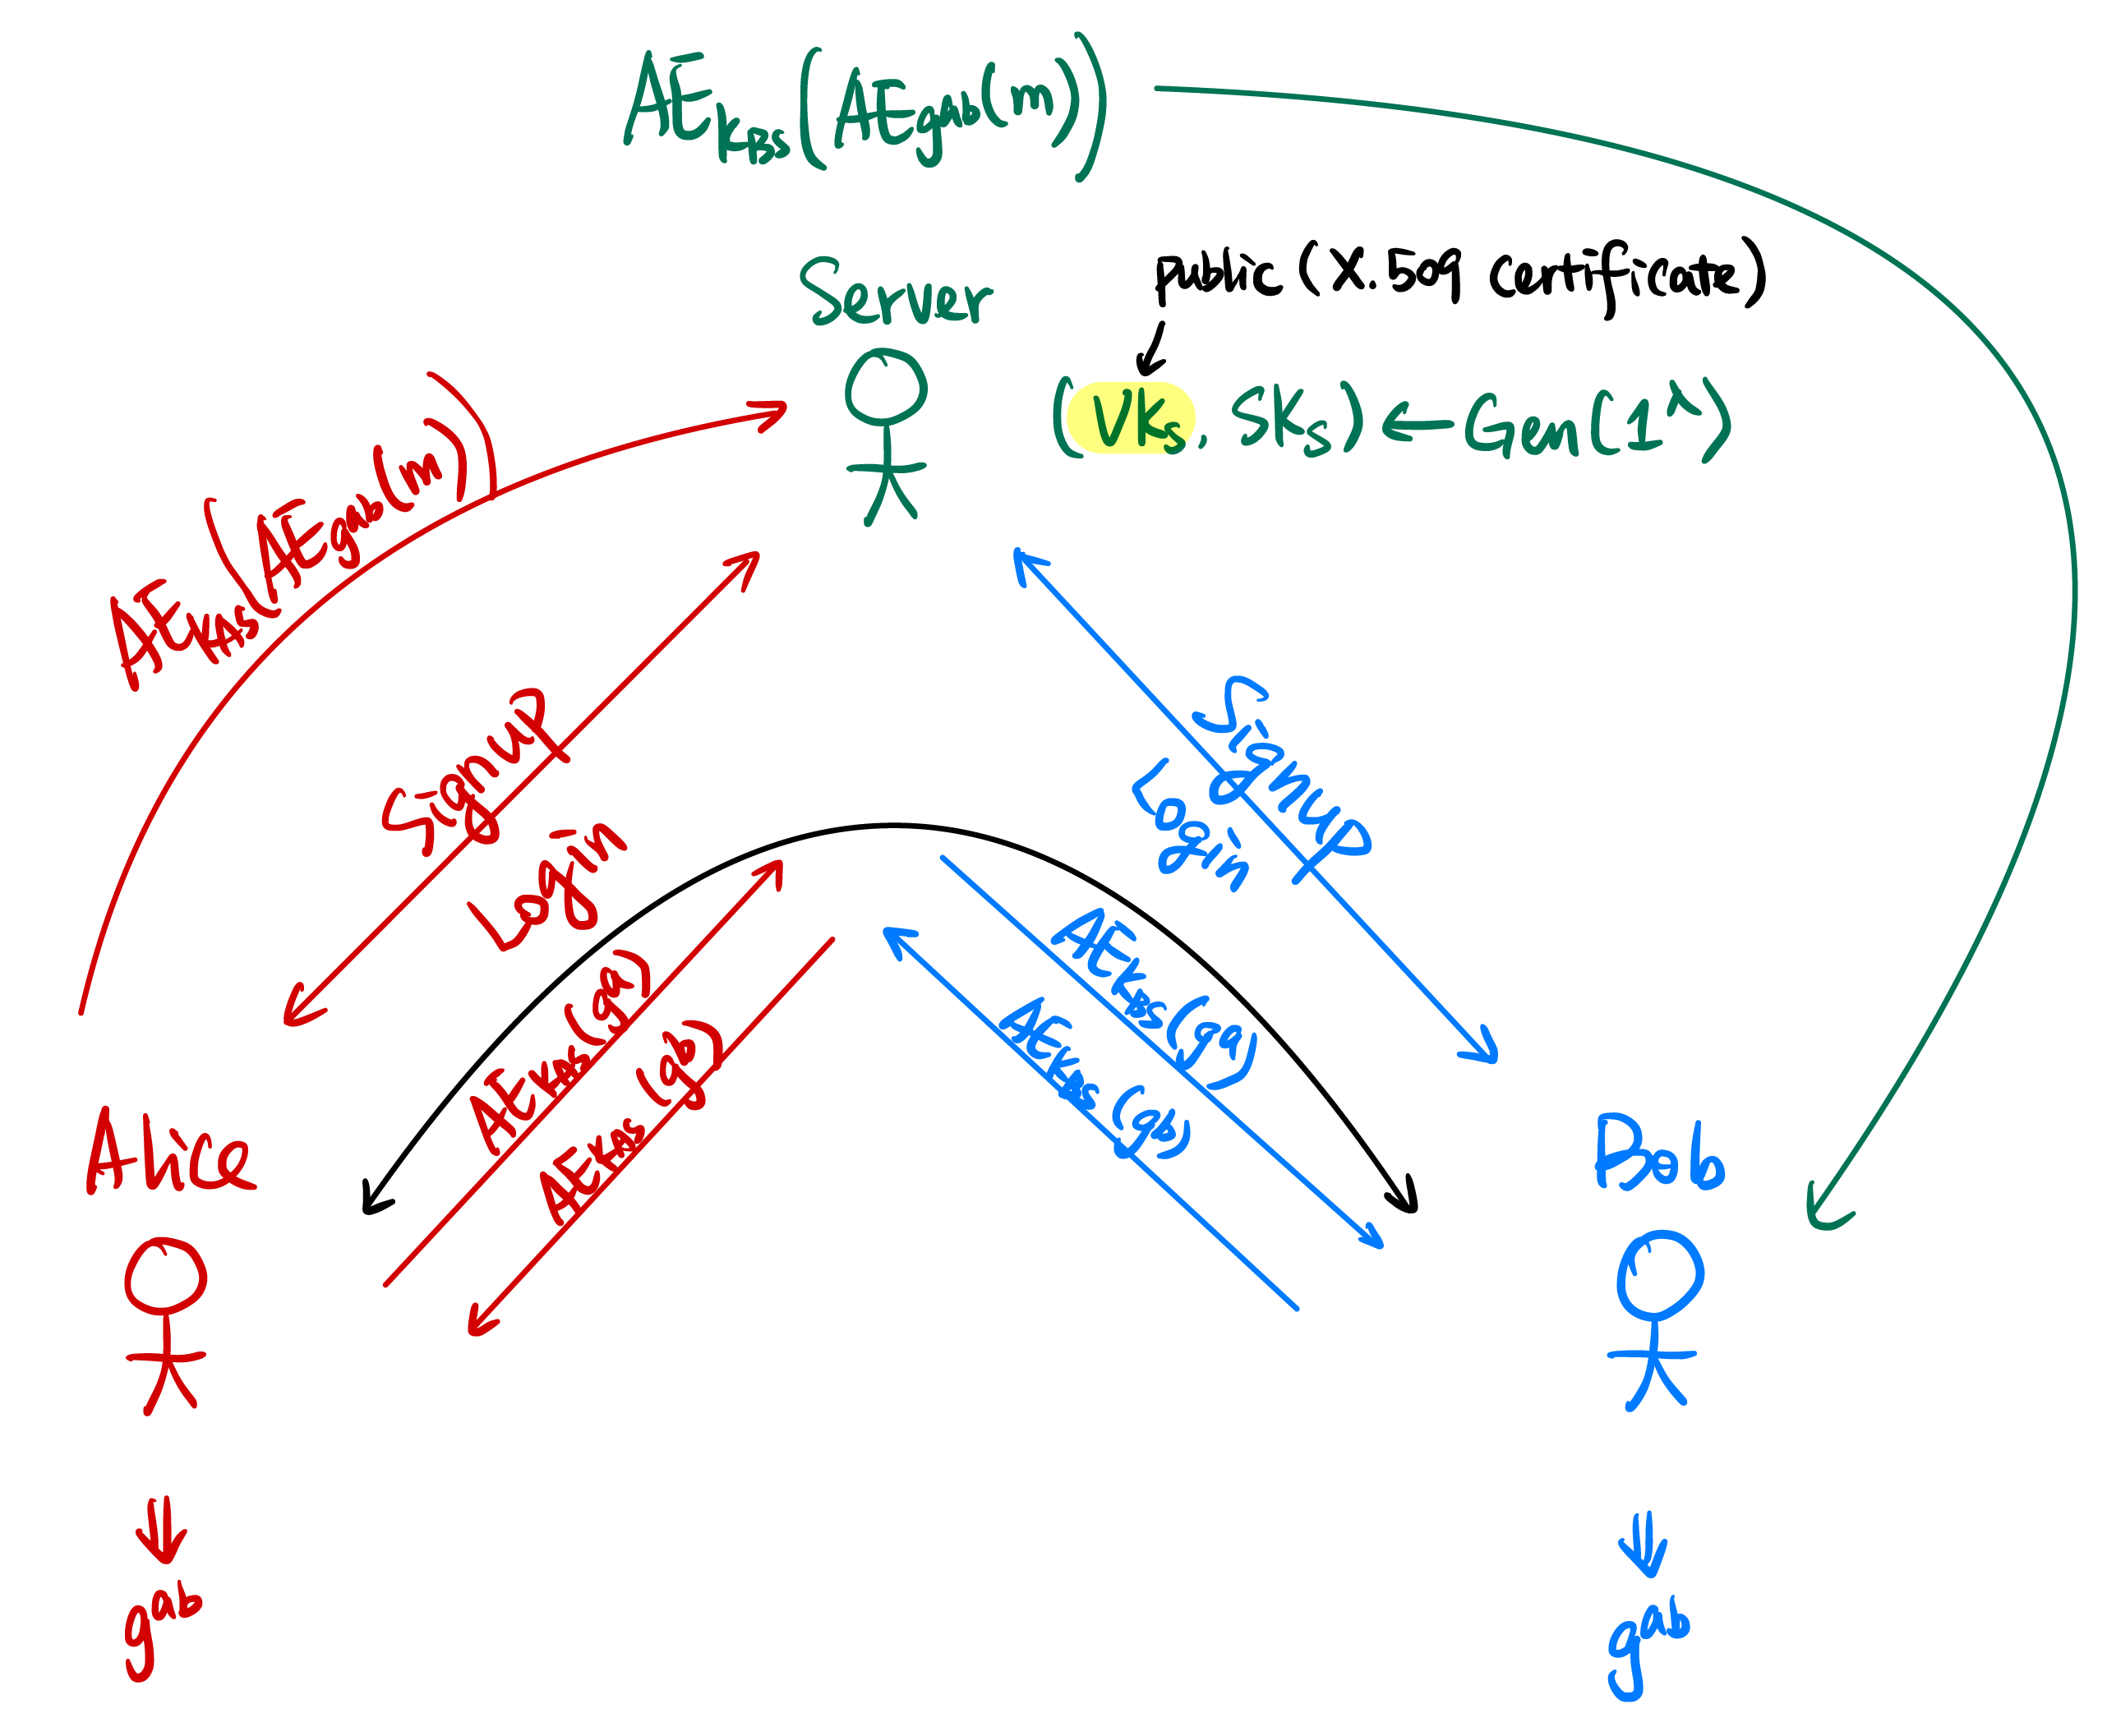 AE_{K_{BS}}(AE_{g^{ab}}(m))
Server
public (X.509 certificate)
(VK_s, SK_s) ← Gen(1^λ)
AE_{K_{AS}}(AE_{g^{ab}}(m))
Signup
Login
Signup
Login
AE_{K_{AS}}(g^a)
AE_{K_{AS}}(g^b)
AE_{K_{BS}}(g^a)
AE_{K_{BS}}(g^b)
Alice
Bob
g^{ab}
g^{ab}